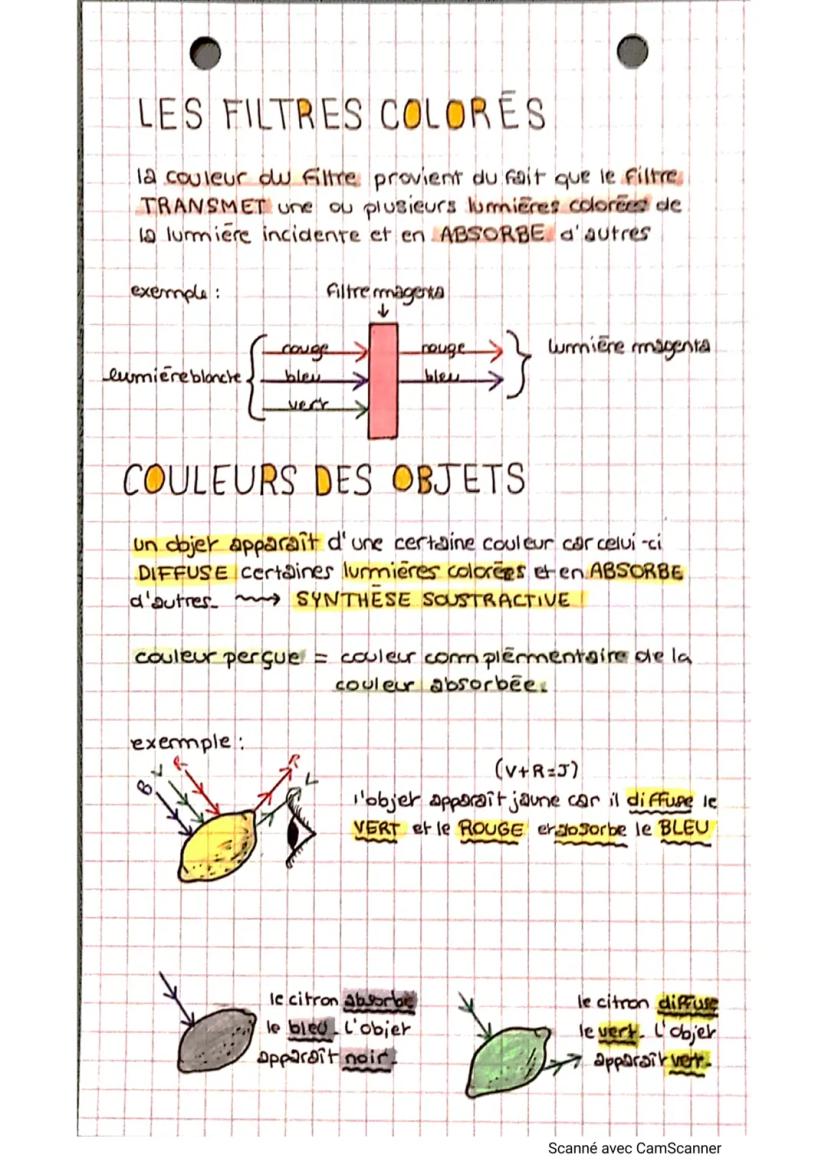 LES FILTRES COLORÉS
la couleur du filtre provient du fait que le filtre
TRANSMET une ou plusieurs lumières colorées de
la lumière incidente et en ABSORBE d'autres
exemple :
filtre magenta
rouge
rouge
lumière magenta
lumière blanche
bleu
bleu
vert
COULEURS DES OBJETS
un objet apparaît d'une certaine couleur car celui-ci
DIFFUSE certaines lumières colorées et en ABSORBE
d'autres. → SYNTHÈSE SOUSTRACTIVE !
couleur perçue = couleur complémentaire de la
couleur absorbée.
exemple :
B V R
R
(V+R=J)
l'objet apparaît jaune car il diffuse le
VERT et le ROUGE et absorbe le BLEU
le citron absorbe
le bleu. L'objet
apparaît noir.
le citron diffuse
le vert. L'objet
apparaît vert.
Scanné avec CamScanner